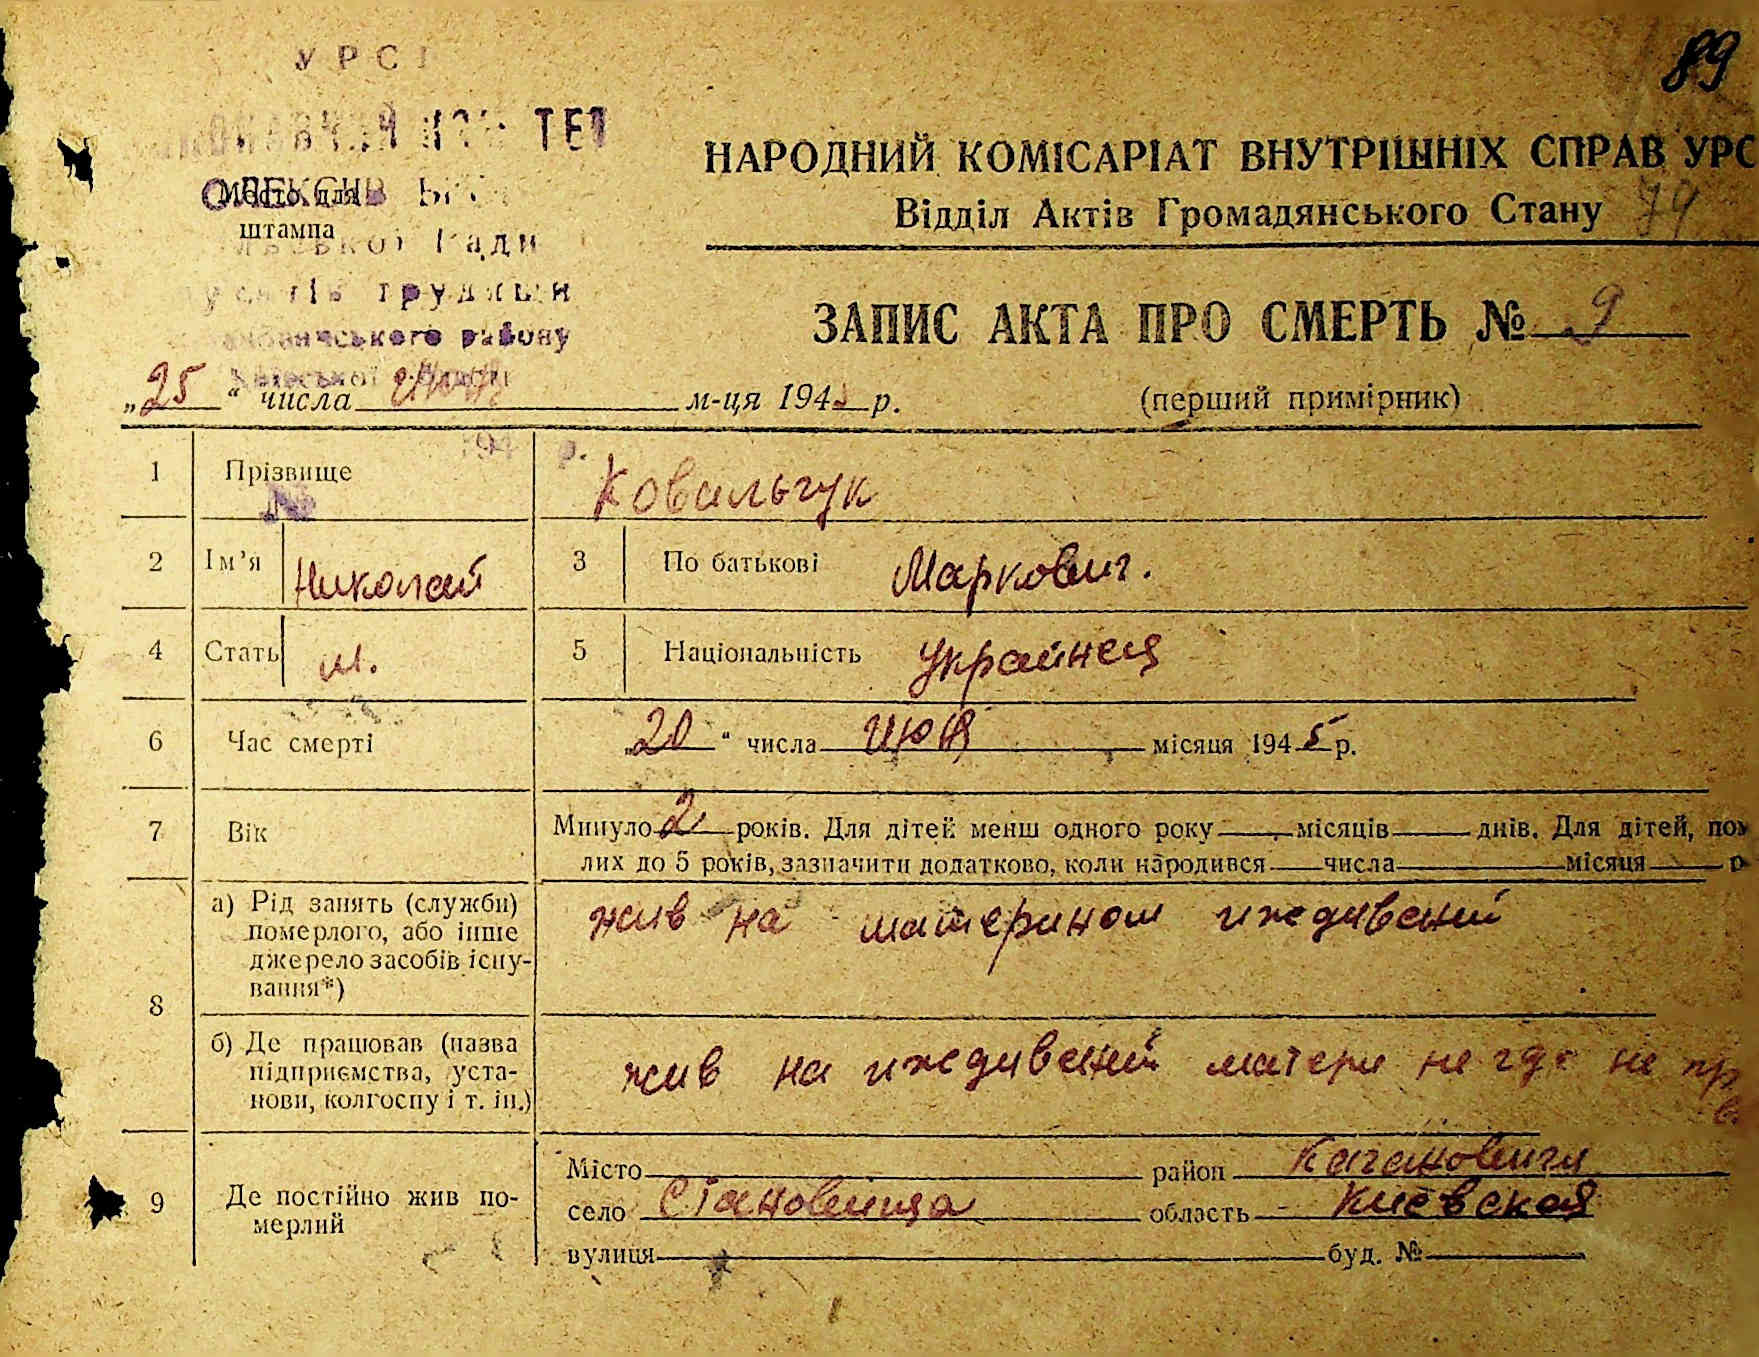 89
УРСР
НАРОДНИЙ КОМІСАРІАТ ВНУТРІШНІХ СПРАВ УРС
74
Відділ Актів Громадянського Стану
Место для
штампа
Ради
трудящих
району
ЗАПИС АКТА ПРО СМЕРТЬ № 9
„25“ числа июня м-ця 1945 р.
(перший примірник)
194 р.
1 Прізвище Ковальчук
№
2 Ім’я Николай 3 По батькові Маркович.
4 Стать м. 5 Національність Украйнец
6 Час смерті „20“ числа июня місяця 1945 р.
7 Вік Минуло 2 років. Для дітей менш одного року місяців днів. Для дітей, пом
лих до 5 років, зазначити додатково, коли народився числа місяця р
8 а) Рід занять (служби) померлого, або інше джерело засобів існування*) жив на материном иждивений
б) Де працював (назва підприємства, установи, колгоспу і т. ін.) жив на иждивений матери не где не пр
9 Де постійно жив померлий
Місто район Кагановичи
село Становища область Киевская
вулиця буд. №